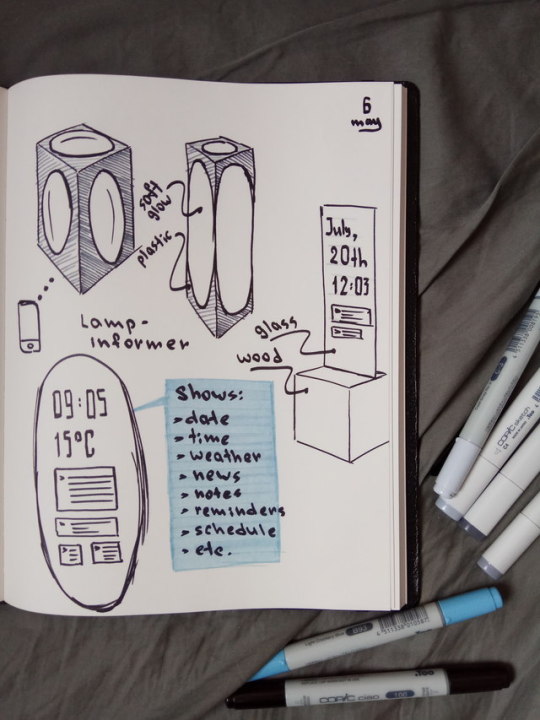 6
may
soft
glow
plastic
Lamp-
informer
July,
20th
12:03
glass
wood
09:05
15°C
Shows:
> date
> time
> weather
> news
> notes
> reminders
> schedule
> etc.
COPIC sketch
COPIC ciao
100